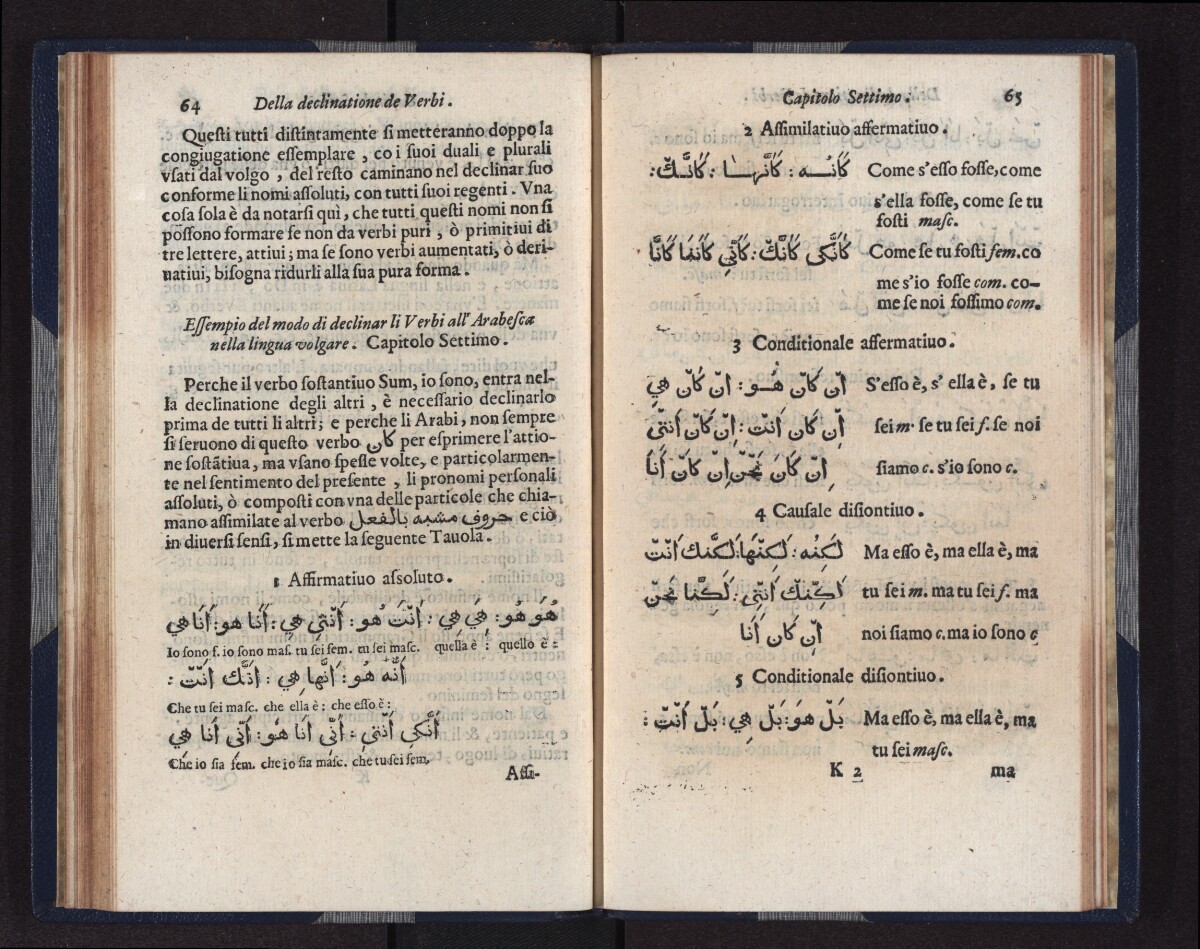 64 Della declinatione de Verbi.
Queſti tutti diſtintamente ſi metteranno doppo la
congiugatione eſſemplare, co i ſuoi duali e plurali
vſati dal volgo, del reſto caminano nel declinar ſuo
conforme li nomi aſſoluti, con tutti ſuoi regenti. Vna
coſa ſola è da notarſi quì, che tutti queſti nomi non ſi
poſſono formare ſe non da verbi puri, ò primitiui di
tre lettere, attiui; ma ſe ſono verbi aumentati, ò deri-
natiui, biſogna ridurli alla ſua pura forma.
Eſſempio del modo di declinar li Verbi all' Arabeſca
nella lingua volgare. Capitolo Settimo.
Perche il verbo ſoſtantiuo Sum, io ſono, entra nel-
la declinatione degli altri, è neceſſario declinarlo
prima de tutti li altri; e perche li Arabi, non ſempre
ſi ſeruono di queſto verbo كان per eſprimere l'attio-
ne ſoſtãtiua, ma vſano ſpeſſe volte, e particolarmen-
te nel ſentimento del preſente, li pronomi perſonali
aſſoluti, ò compoſti con vna delle particole che chia-
mano aſſimilate al verbo حروف مشبه بالفعل e ciò
in diuerſi ſenſi, ſi mette la ſeguente Tauola.
1 Affirmatiuo aſſoluto.
هُوَ هُو: هِي هِي: أَنْتَ هُو: أَنْتي هِي: أَنَا هو: أَنَا هي
Io ſono f. io ſono maſ. tu ſei fem. tu ſei maſc. quella è : quello è :
أَنَّهُ هُو: أَنَّها هِي: أَنَّك أَنْتْ:
Che tu ſei maſc. che ella è: che eſſo è:
أَنَّكِي أَنْتي: أَنّي أَنَا هُو: أَنّي أَنَا هي
Che io ſia fem. che io ſia maſc. che tu ſei fem.
Aſſi-
Capitolo Settimo. 65
2 Aſſimilatiuo affermatiuo.
كَأنُّــه: كَأنَّهــا: كَأنَّــكْ: Come s'eſſo foſſe, come
s'ella foſſe, come ſe tu
foſti maſc.
كَأنَّكي كَأنَّكْ: كَأنّي كَأنَّما كَأنَّا Come ſe tu foſti fem. co
me s'io foſſe com. co-
me ſe noi foſſimo com.
3 Conditionale affermatiuo.
اِنْ كَانْ هُــو: اِنْ كَانْ هِي S'eſſo è, s' ella è, ſe tu
اِنْ كَان أَنْتْ: اِنْ كَانْ أَنْتي ſei m. ſe tu ſei f. ſe noi
اِنْ كَانَ نَحْنْ اِنْ كَانْ أَنَا ſiamo c. s'io ſono c.
4 Cauſale diſiontiuo.
لَكِنُه: لَكِنّها: لَكِنَّك أَنْتْ Ma eſſo è, ma ella è, ma
لَكِنّكْ أَنْتِي: لَكِنَّا نَحْنْ tu ſei m. ma tu ſei f. ma
اِنْ كَان أَنَا noi ſiamo c. ma io ſono c
5 Conditionale diſiontiuo.
بَلْ هُوَ: بَلْ هِي: بَلْ أَنْتْ: Ma eſſo è, ma ella è, ma
tu ſei maſc.
K 2 ma